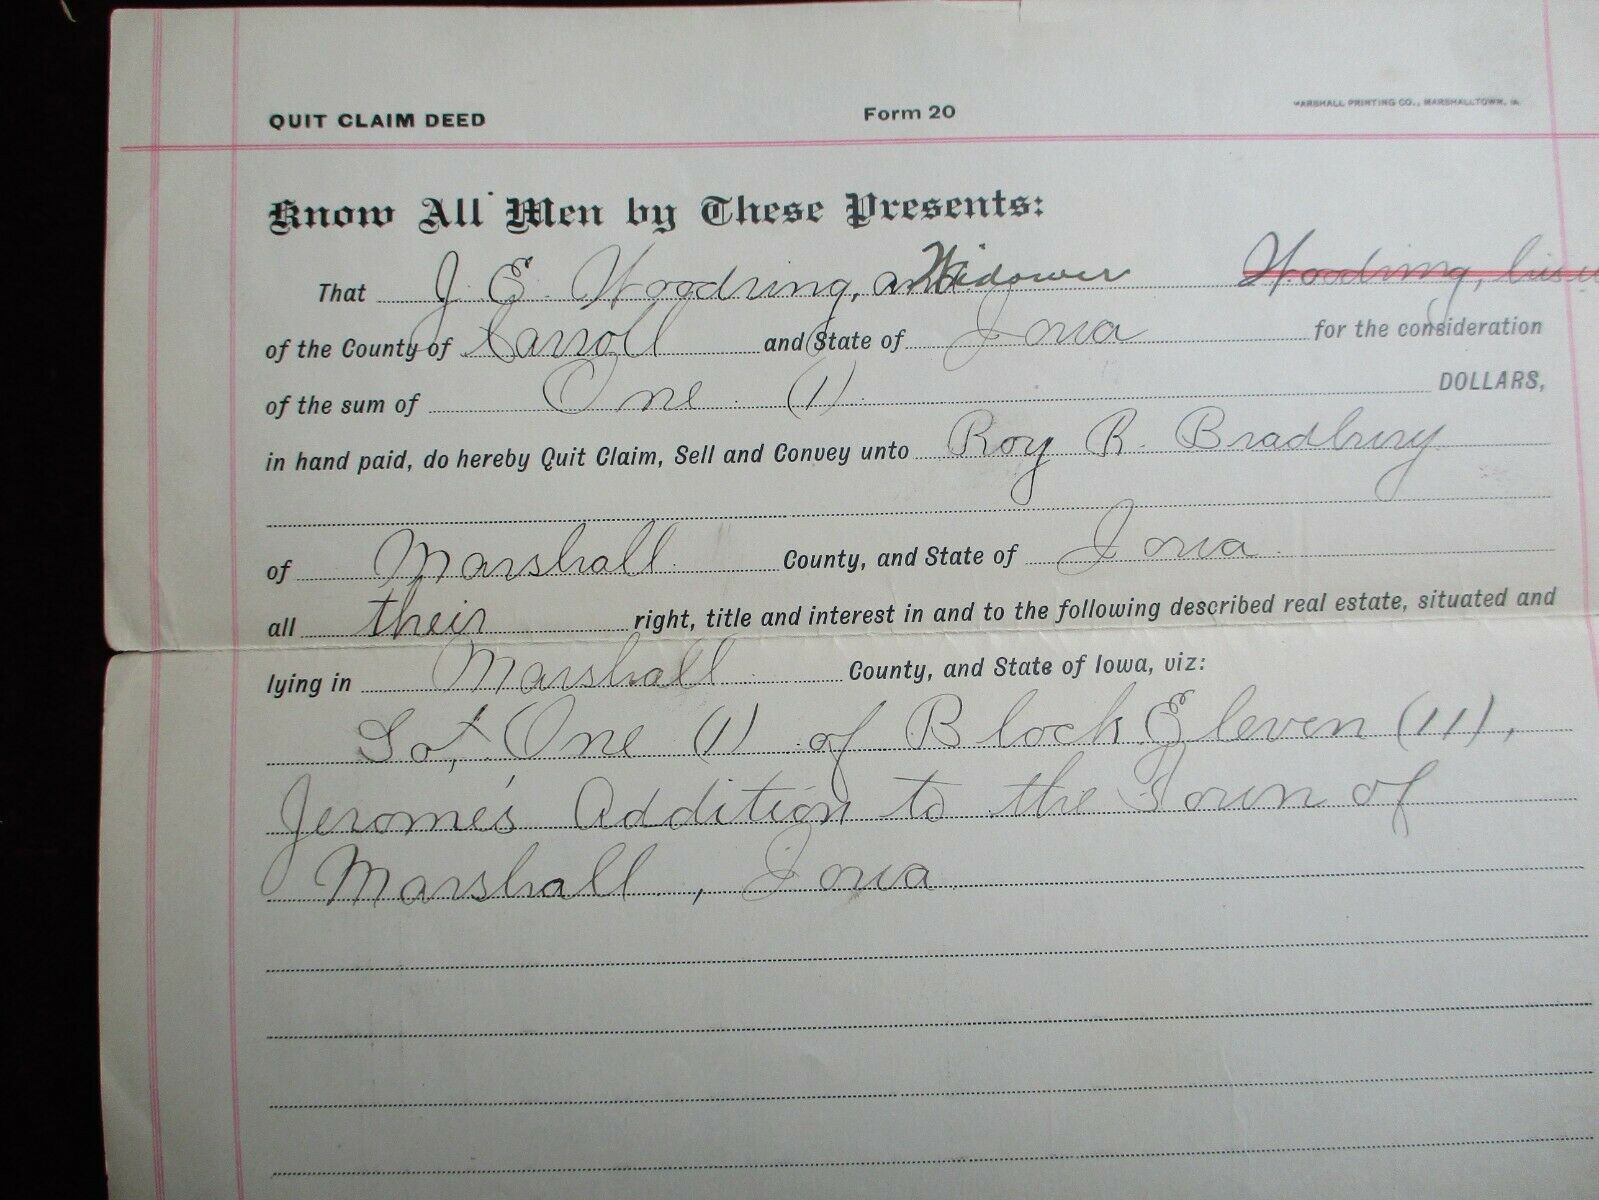 QUIT CLAIM DEED Form 20 MARSHALL PRINTING CO., MARSHALLTOWN, IA.
Know All Men by These Presents:
That J. E. Woodring, a Widower Woodring,
of the County of Carroll and State of Iowa for the consideration
of the sum of One (1) DOLLARS,
in hand paid, do hereby Quit Claim, Sell and Convey unto Roy R. Bradbury
of Marshall County, and State of Iowa
all their right, title and interest in and to the following described real estate, situated and
lying in Marshall County, and State of Iowa, viz:
Lot One (1) of Block Eleven (11),
Jerome's Addition to the Town of
Marshall, Iowa